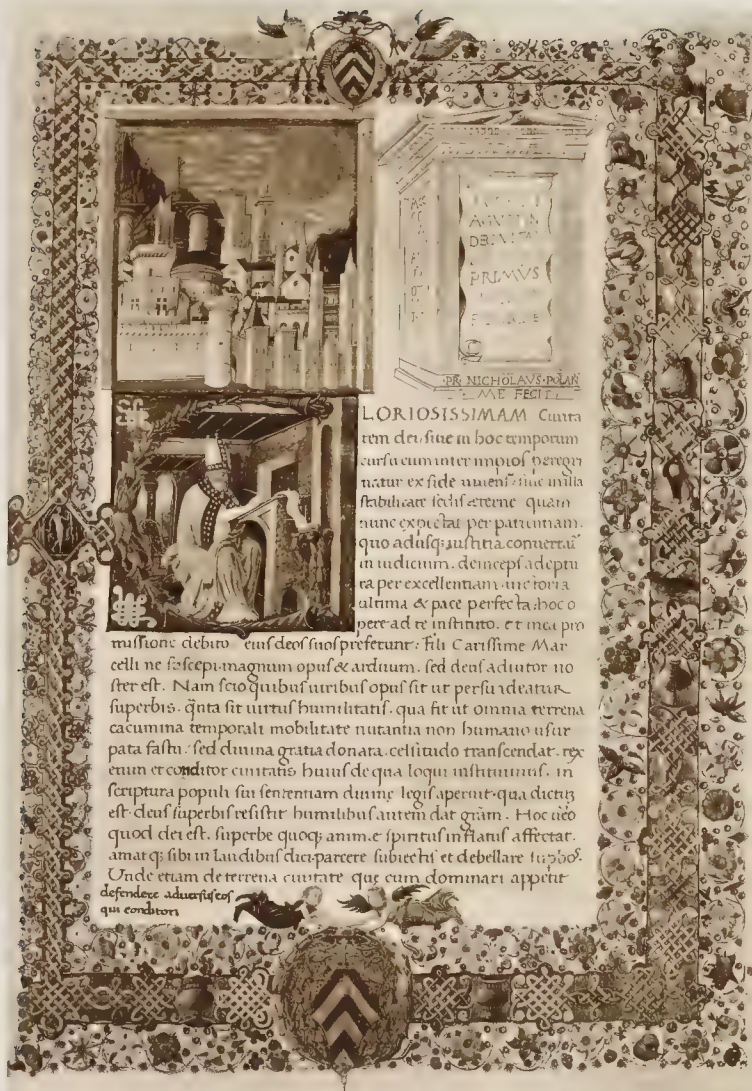 DE
PRIMVS
·PR· NICHOLAVS·POLAN̄
ME FECIT
LORIOSISSIMAM Ciuita
tem dei. siue in hoc temporum
cursu cum inter impios peregri
natur ex fide uiuens: siue in illa
stabilitate sedis aeterne quam
nunc expectat per patientiam.
quo adusq; iustitia conuertat̄
in iudicium. deinceps adeptu
ra per excellentiam uictoria
ultima & pace perfecta: hoc o
pere ad te instituto. et mea pro
missione debito eius deos suos preferunt: Fili Carissime Mar
celli ne suscepi. magnum opus & arduum. sed deus adiutor no
ster est. Nam scio quibus uiribus opus sit ut persuadeatur
superbis. q̄nta sit uirtus humilitatis. qua fit ut omnia terrena
cacumina temporali mobilitate nutantia non humano usur
pata fastu: sed diuina gratia donata. cellitudo transcendat. rex
enim et conditor ciuitatis huius de qua loqui instituimus. in
scriptura populi sui sententiam diuine legis aperuit. qua dictuȝ
est. deus superbis resistit humilibus autem dat grām. Hoc uēo
quod dei est. superbe quoq; anim.e spiritus inflatus affectat.
amat q; sibi in laudibus dici. parcere subiectis et debellare supbos.
Unde etiam de terrena ciuitate que cum dominari appetit
defendere aduersus eos
qui conditori